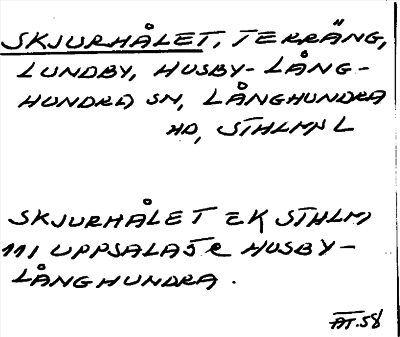 SKJURHÅLET, TERRÄNG,
LUNDBY, HUSBY-LÅNG-
HUNDRA SN, LÅNGHUNDRA
HD, STHLMS L
SKJURHÅLET EK STHLM
111 UPPSALA 5R HUSBY-
LÅNGHUNDRA.
ÄT.58